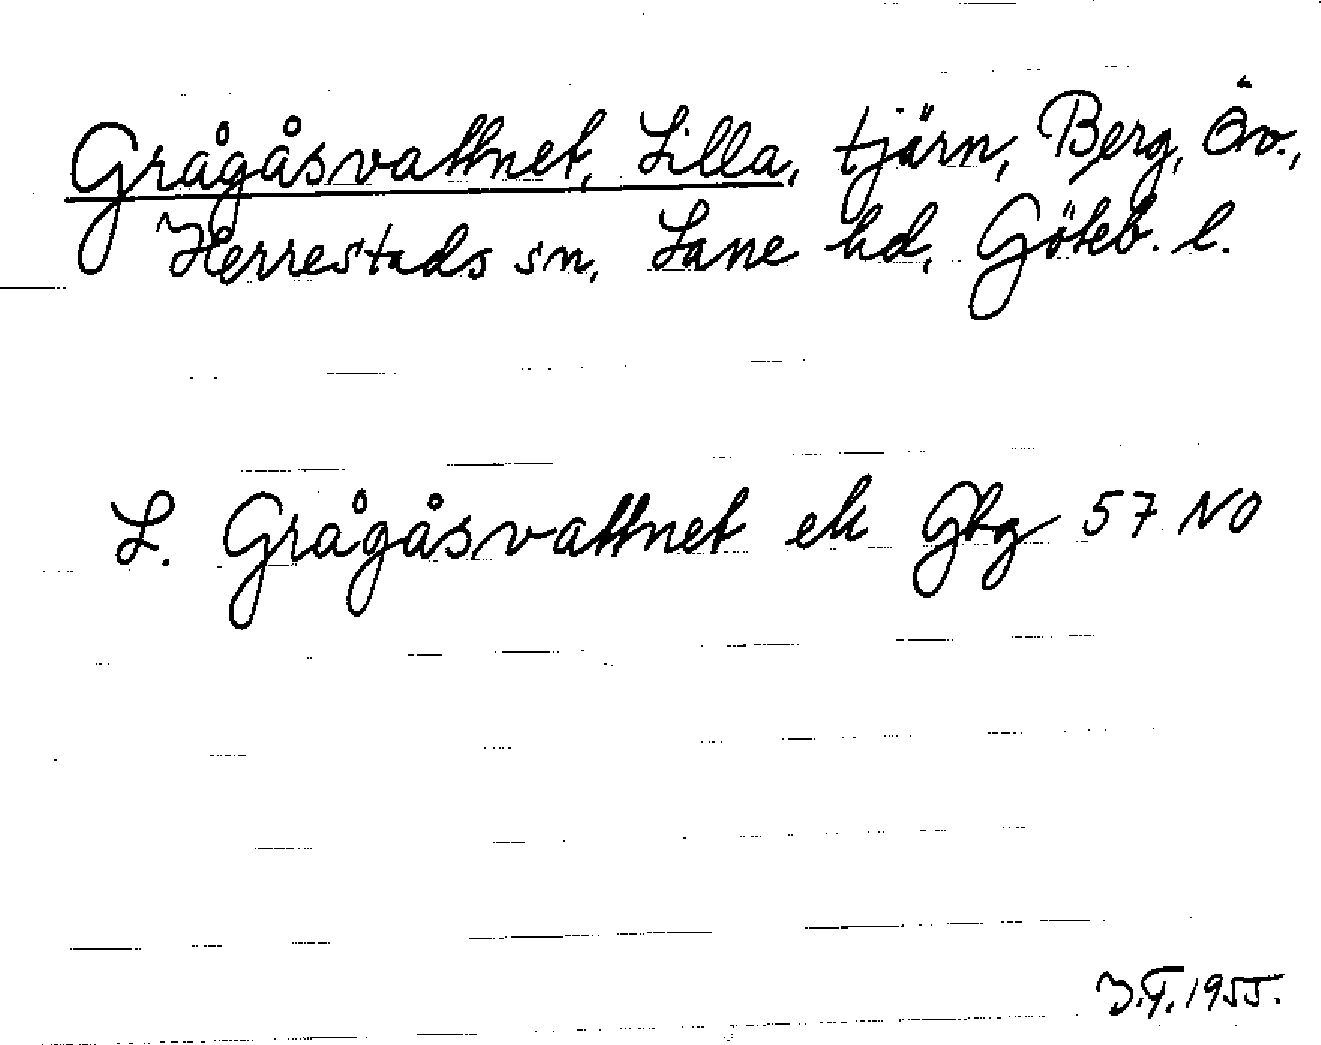 Grågåsvattnet, Lilla, tjärn, Berg, Öv.,
Herrestads sn, Lane hd, Göteb. l.
L. Grågåsvattnet ek Gbg 57 NO
J.T. 1955.